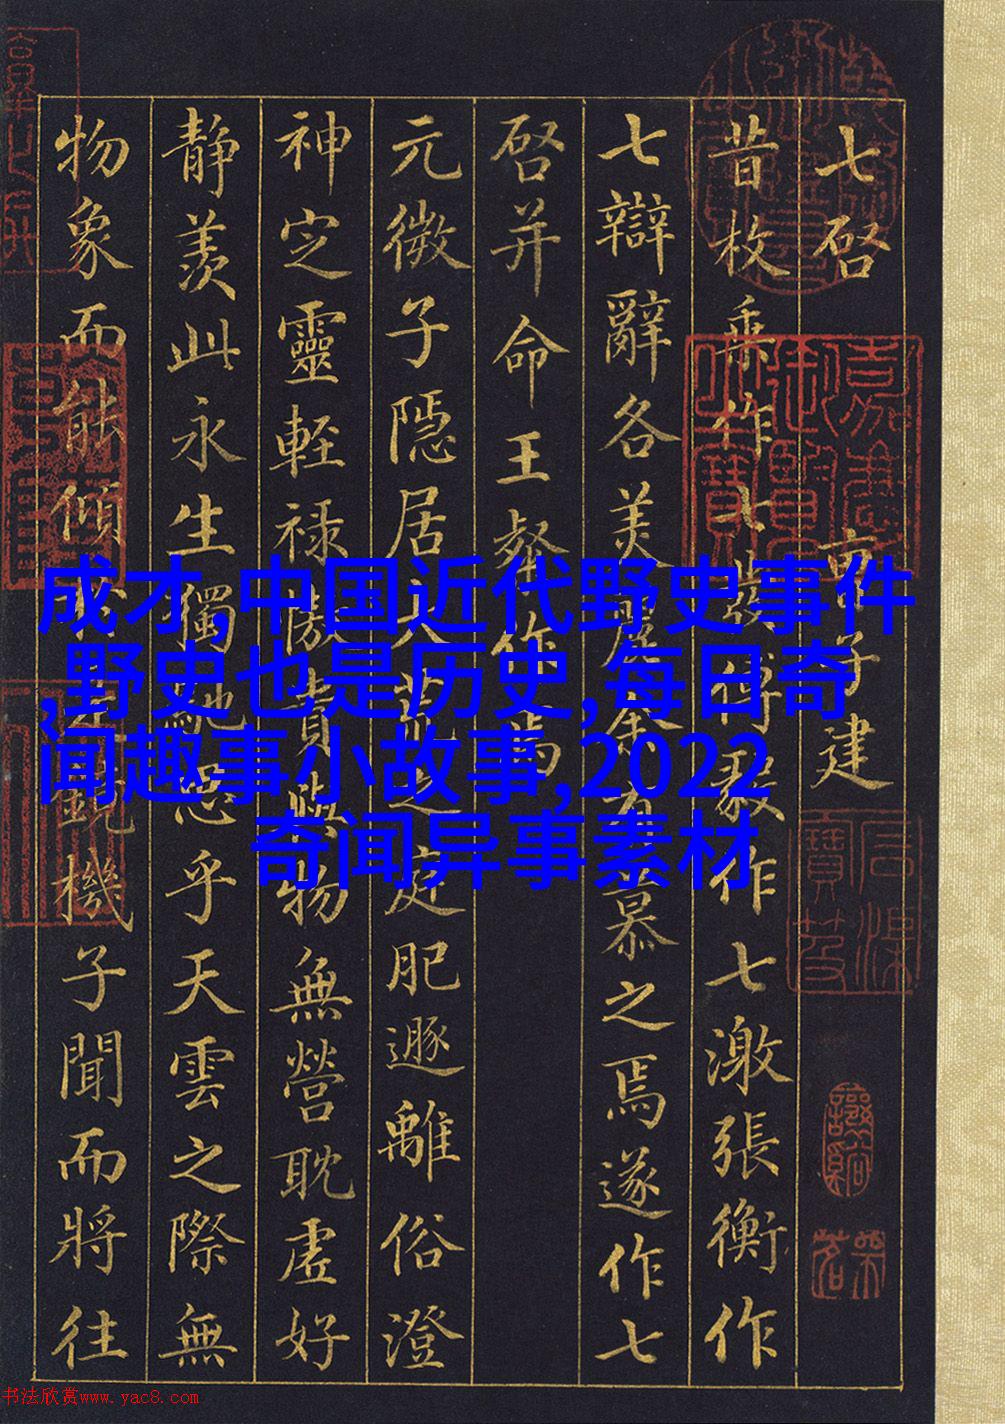 七啓 子建
昔枚乘作七發傅毅作七激張衡作
七辯辭各美麗余有慕之焉遂作七
啓并命王粲作焉
元微子隱居大荒之庭肥遯離俗澄
神定靈輕祿傲貴與物無營耽虛好
靜羨此永生獨馳思乎天雲之際無
物象而能傾於是鏡機子聞而將往
嘉慶御覽之寶
成才,中国近代野史事件
,野史也是历史,每日奇
闻趣事小故事,2022
奇闻异事素材
书法欣赏www.yac8.com